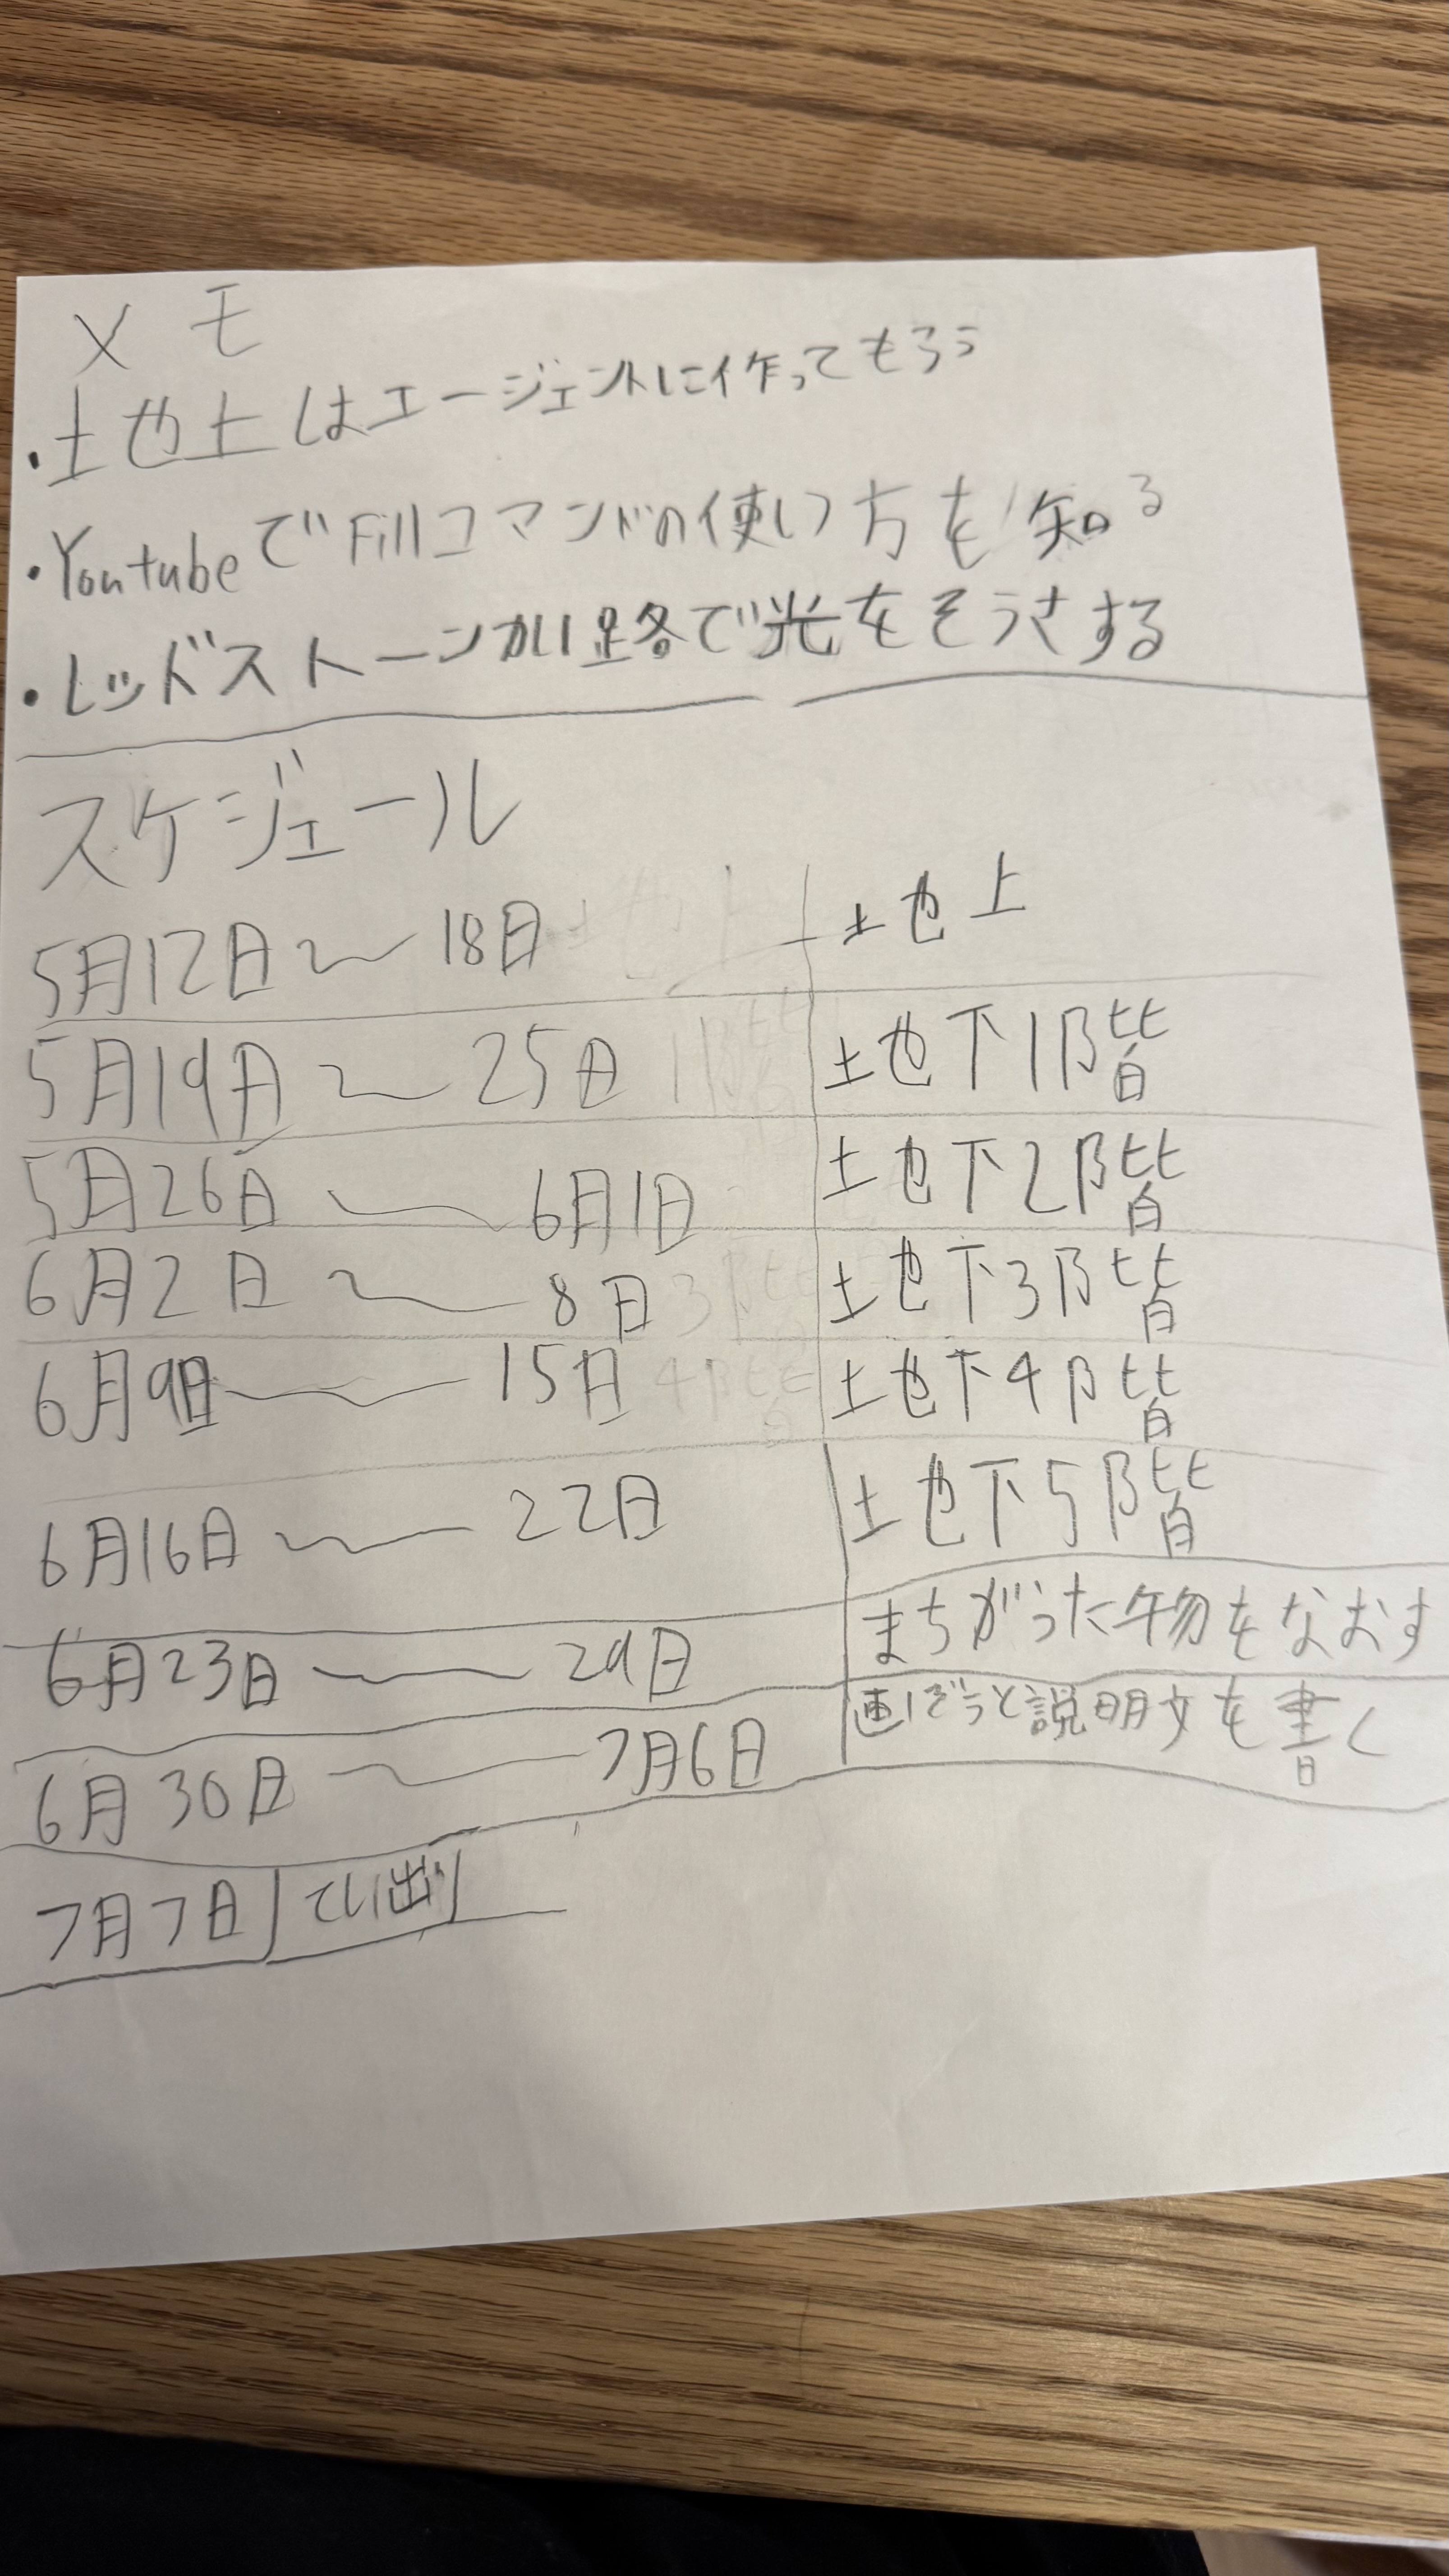 メモ
・地上はエージェントに作ってもらう
・YoutubeでFillコマンドの使い方を知る
・レッドストーンかい路で光をそうさする
スケジェール
5月12日〜18日 地上
5月19日〜25日 地下1階
5月26日〜6月1日 地下2階
6月2日〜8日 地下3階
6月9日〜15日 地下4階
6月16日〜22日 地下5階
6月23日〜29日 まちがった物をなおす
6月30日〜7月6日 画ぞうと説明文を書く
7月7日 てい出